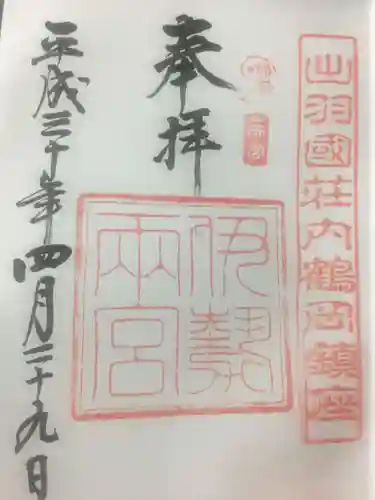 出羽國荘内鶴岡鎮座
奉拝
伊勢
两宮
平成三十年四月二十九日